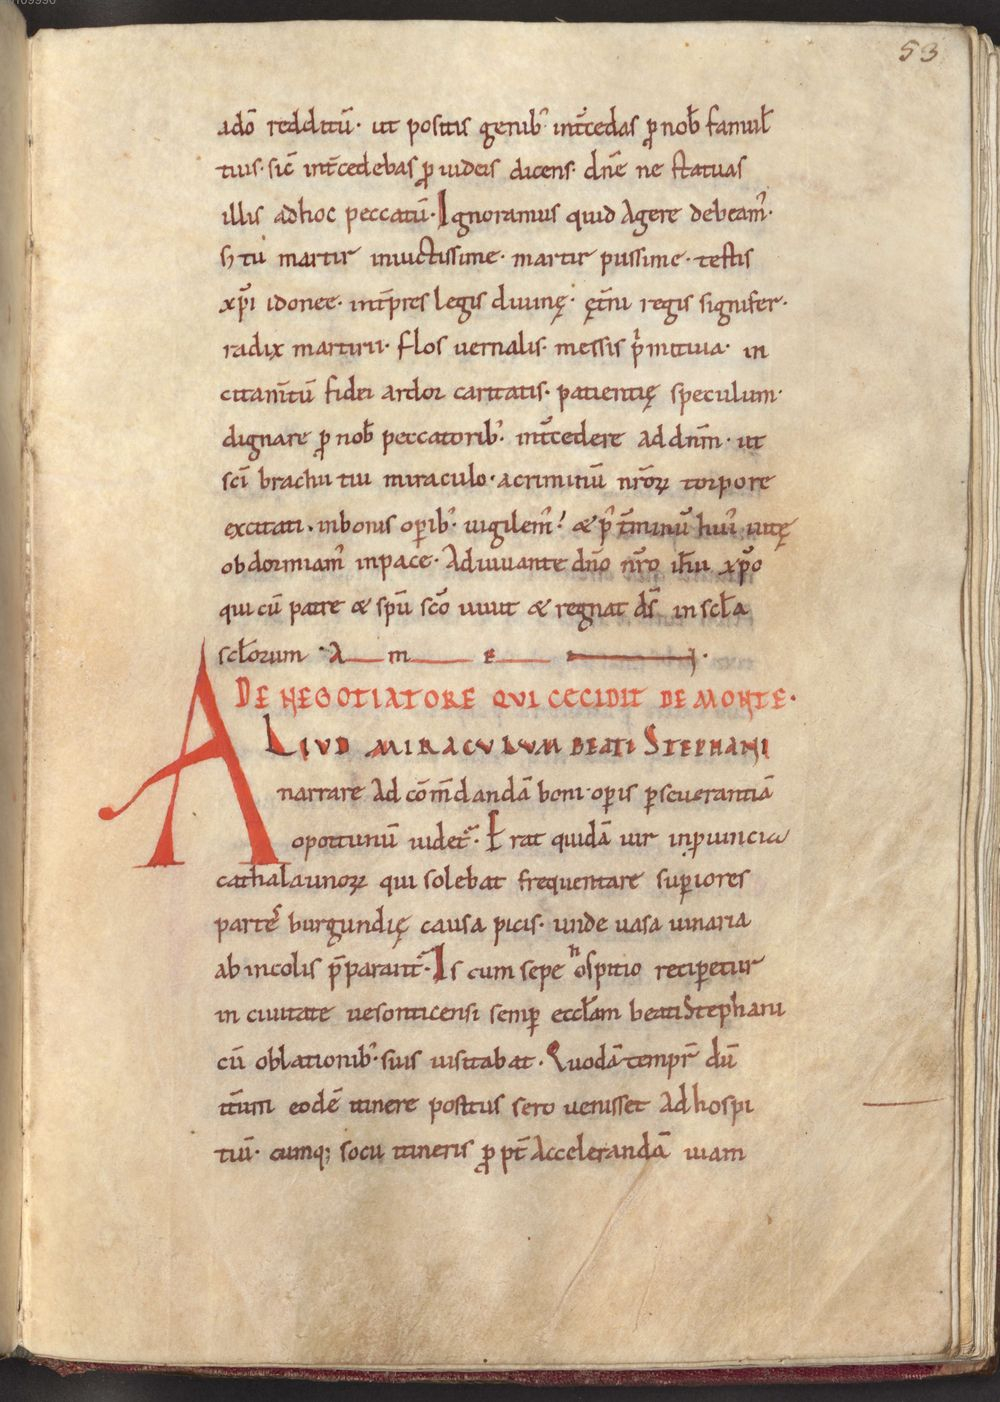 53
adō redditū· ut positis genib᷒ int̄cedas ꝓ nob̄ famul̄
tuis· sic̄ int̄cedebas ꝓ iudeis dicens· dn̄e ne statuas
illis adhoc peccatū· Ignoramus quid Agere debeam᷒·
sʒ tu martir inuictissime· martir piissime· testis
xp̄i idonee· int̄pres legis diuinę· ęt̄ni regis signifer·
radix martirii· flos uernalis· messis p̄mitiua· in
citam̄tū fidei ardor caritatis· patientię speculum·
dignare ꝓ nob̄ peccatorib᷒· int̄cedere ad dn̄m· ut
sc̄i brachii tui miraculo· a criminū nr̄oꝝ torpore
excitati· in bonis oꝑib᷒· uigilem᷒! & p᷒ t̄minū hui᷒ uitę
obdormiam᷒ in pace· Adiuuante dn̄o nr̄o ih̄u xp̄o
qui cū patre & sp̄u sc̄o uiuit & regnat ds̄ in scl̄a
scl̄orum· A m e n·
DE NEGOTIATORE QUI CECIDIT DE MONTE·
ALIUD MIRACULUM BEATI STEPHANI
narrare Ad cōm̄dandā boni oꝑis ꝑseuerantiā
oportunū uidet᷑· Erat quidā uir in ꝓuincia
cathalaunoꝝ qui solebat frequentare suꝑiores
partes burgundię causa picis· unde uasa uinaria
ab incolis p̄parant᷑· Is cum sepe hospitio reciꝑetur
in ciuitate uesonticensi semꝑ eccl̄am beati Stephani
cū oblationib᷒· suis uisitabat· Quodā tempr̄ dū
it̄um eodē itinere positus sero uenisset Ad hospi
tiū· cumq; socii itineris ꝓpt̄ Accelerandā uiam